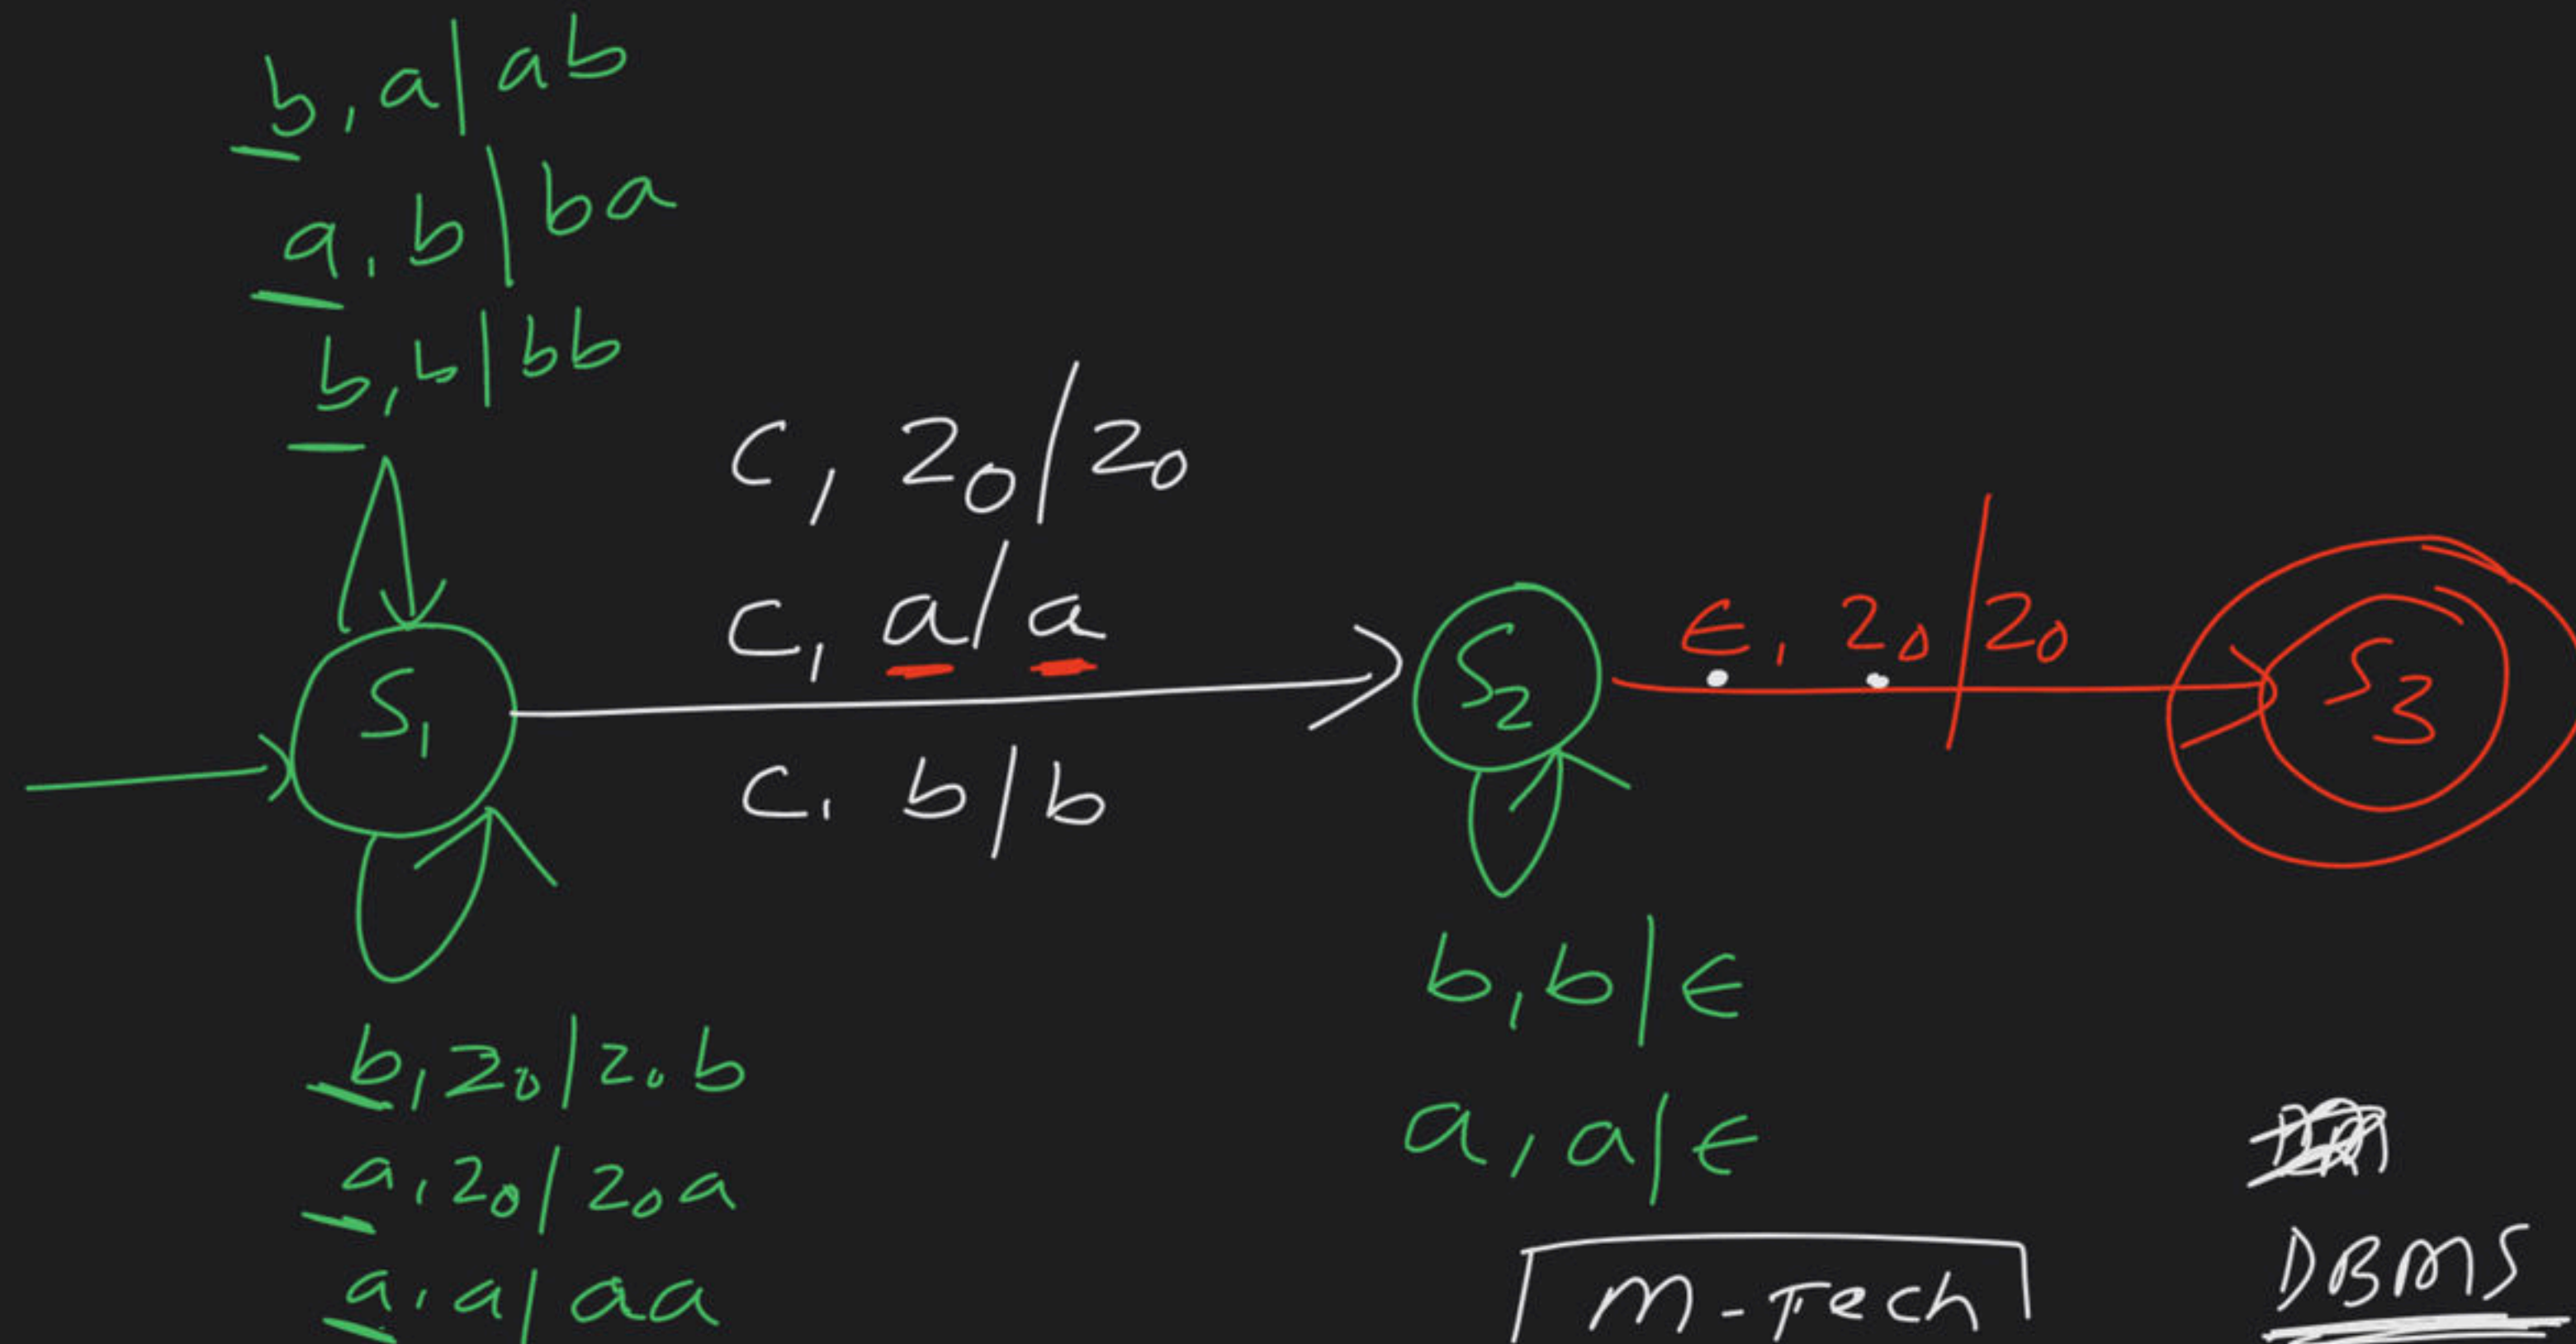 b, a | ab
a, b | ba
b, b | bb
c, z0 / z0
c, a / a
c, b / b
S1
S2
ϵ, z0 / z0
S3
b, z0 | z0 b
a, z0 / z0 a
a, a / aa
b, b | ϵ
a, a | ϵ
M-Tech
DBMS